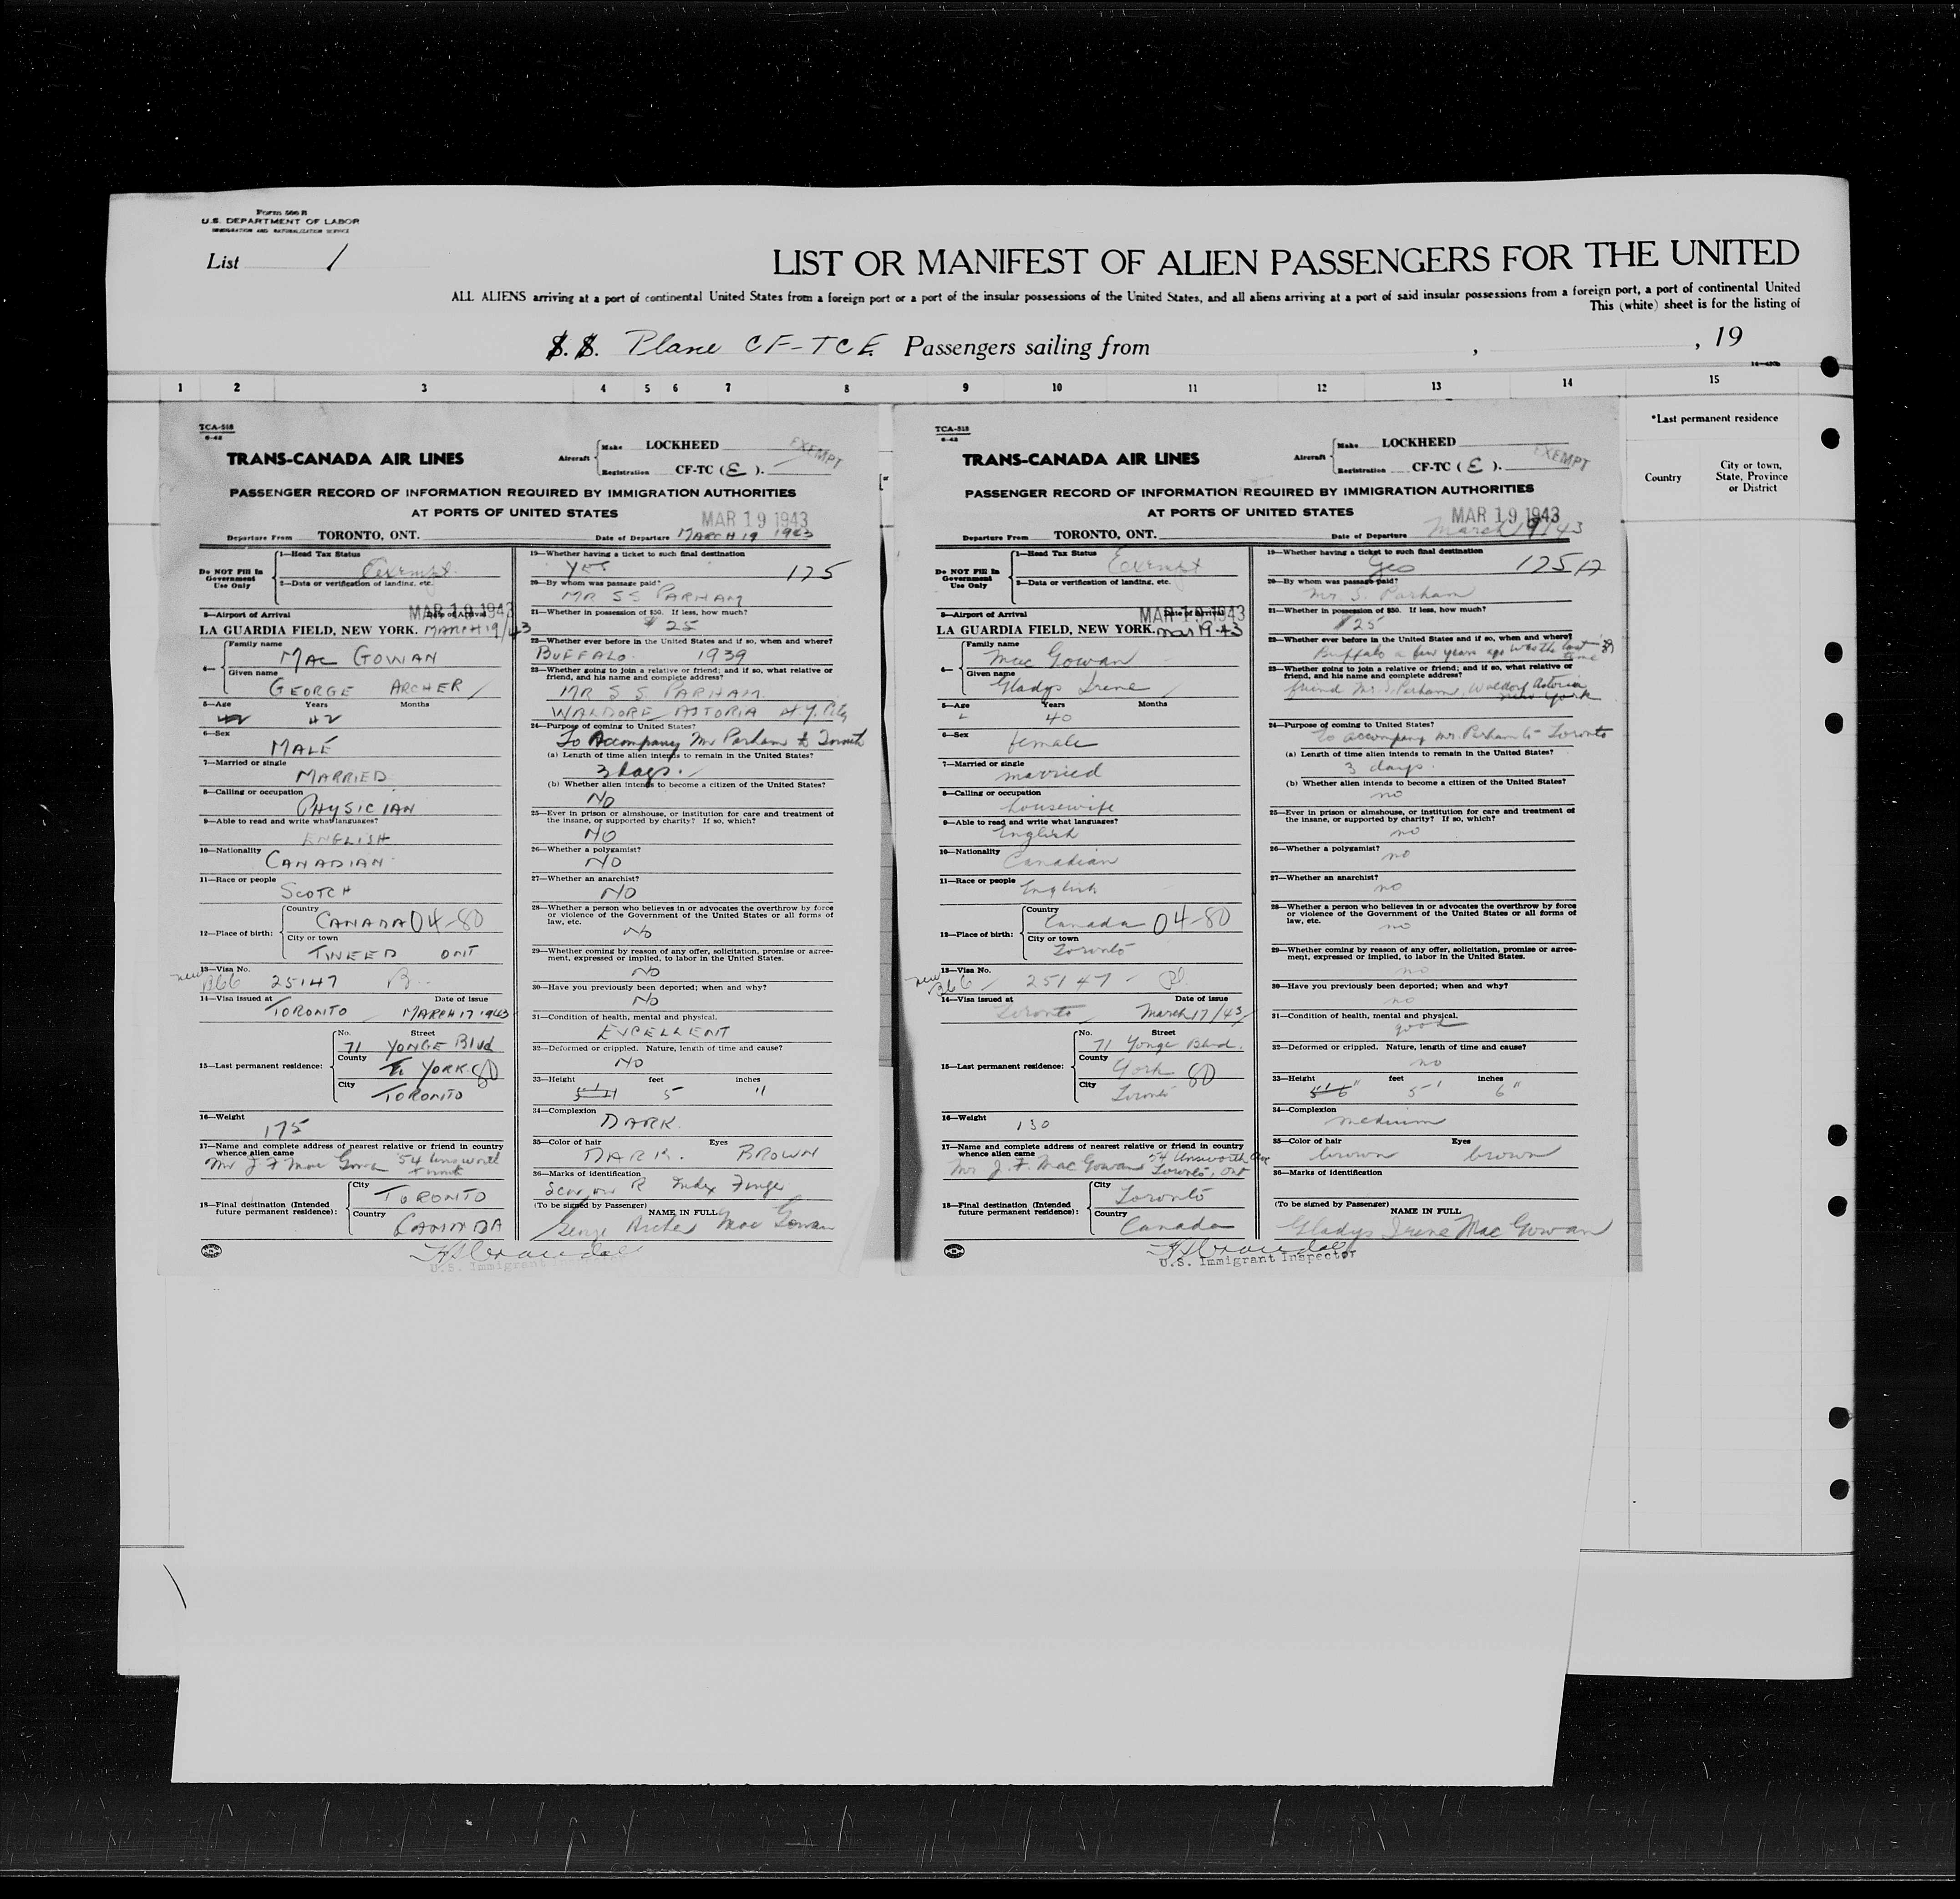 Form 500 B
U.S. DEPARTMENT OF LABOR
IMMIGRATION AND NATURALIZATION SERVICE
List 1
LIST OR MANIFEST OF ALIEN PASSENGERS FOR THE UNITED
ALL ALIENS arriving at a port of continental United States from a foreign port or a port of the insular possessions of the United States, and all aliens arriving at a port of said insular possessions from a foreign port, a port of continental United
This (white) sheet is for the listing of
S. S. Plane CF-TCE Passengers sailing from , , 19
1 2 3 4 5 6 7 8 9 10 11 12 13 14 15
*Last permanent residence
Country
City or town, State, Province or District
TCA-518
6-42
TRANS-CANADA AIR LINES
Aircraft Make LOCKHEED
Registration CF-TC (E).
EXEMPT
PASSENGER RECORD OF INFORMATION REQUIRED BY IMMIGRATION AUTHORITIES
AT PORTS OF UNITED STATES
MAR 19 1943
Departure From TORONTO, ONT. Date of Departure MARCH 19 1943
Do NOT Fill In Government Use Only
1—Head Tax Status Exempt
2—Data or verification of landing, etc.
3—Airport of Arrival Date of Arrival
MAR 19 1943
LA GUARDIA FIELD, NEW YORK. MARCH 19/43
4— Family name MAC GOWAN
Given name GEORGE ARCHER
5—Age Years Months
42 42
6—Sex MALE
7—Married or single MARRIED
8—Calling or occupation PHYSICIAN
9—Able to read and write what languages? ENGLISH
10—Nationality CANADIAN
11—Race or people SCOTCH
12—Place of birth: Country CANADA 04-80
City or town TWEED ONT
13—Visa No. 25147
new
14—Visa issued at TORONTO Date of issue MARCH 17 1943
15—Last permanent residence: No. 71 Street YONGE Blvd
County YORK 80
City TORONTO
16—Weight 175
17—Name and complete address of nearest relative or friend in country whence alien came
Mr J F Mac Gowan 54 Unsworth
18—Final destination (Intended future permanent residence): City TORONTO
Country CANADA
19—Whether having a ticket to such final destination YES 175
20—By whom was passage paid? MR SS PARHAM
21—Whether in possession of $50. If less, how much? $25
22—Whether ever before in the United States and if so, when and where?
BUFFALO. 1939
23—Whether going to join a relative or friend; and if so, what relative or friend, and his name and complete address?
MR S S. PARHAM.
WALDORF ASTORIA N.Y. City
24—Purpose of coming to United States?
To Accompany Mr Parham to Toronto
(a) Length of time alien intends to remain in the United States?
3 days.
(b) Whether alien intends to become a citizen of the United States?
NO
25—Ever in prison or almshouse, or institution for care and treatment of the insane, or supported by charity? If so, which?
NO
26—Whether a polygamist? NO
27—Whether an anarchist? NO
28—Whether a person who believes in or advocates the overthrow by force or violence of the Government of the United States or all forms of law, etc.
NO
29—Whether coming by reason of any offer, solicitation, promise or agreement, expressed or implied, to labor in the United States.
NO
30—Have you previously been deported; when and why?
NO
31—Condition of health, mental and physical.
EXCELLENT
32—Deformed or crippled. Nature, length of time and cause?
NO
33—Height feet inches
5 11
34—Complexion DARK.
35—Color of hair DARK. Eyes BROWN
36—Marks of identification
Scar on R Index Finger
(To be signed by Passenger) NAME IN FULL
George Archer Mac Gowan
U.S. Immigrant Inspector
TCA-518
6-42
TRANS-CANADA AIR LINES
Aircraft Make LOCKHEED
Registration CF-TC (E).
EXEMPT
PASSENGER RECORD OF INFORMATION REQUIRED BY IMMIGRATION AUTHORITIES
AT PORTS OF UNITED STATES
MAR 19 1943
Departure From TORONTO, ONT. Date of Departure March 19/43
Do NOT Fill In Government Use Only
1—Head Tax Status Exempt
2—Data or verification of landing, etc.
3—Airport of Arrival Date of Arrival
MAR 19 1943
LA GUARDIA FIELD, NEW YORK. Mar 19-43
4— Family name Mac Gowan
Given name Gladys Irene
5—Age Years Months
40
6—Sex female
7—Married or single married
8—Calling or occupation housewife
9—Able to read and write what languages? English
10—Nationality Canadian
11—Race or people English
12—Place of birth: Country Canada 04-80
City or town Toronto
13—Visa No. 25147
new
14—Visa issued at Toronto Date of issue March 17/43
15—Last permanent residence: No. 71 Street Yonge Blvd.
County York 80
City Toronto
16—Weight 130
17—Name and complete address of nearest relative or friend in country whence alien came
Mr. J. F. Mac Gowan 54 Unsworth Ave Toronto, Ont
18—Final destination (Intended future permanent residence): City Toronto
Country Canada
19—Whether having a ticket to such final destination yes 175
20—By whom was passage paid? Mr. S. Parham
21—Whether in possession of $50. If less, how much? $25
22—Whether ever before in the United States and if so, when and where?
Buffalo a few years ago was the last time
23—Whether going to join a relative or friend; and if so, what relative or friend, and his name and complete address?
friend Mr. S. Parham, Waldorf Astoria
New York
24—Purpose of coming to United States?
to accompany Mr. Parham to Toronto
(a) Length of time alien intends to remain in the United States?
3 days.
(b) Whether alien intends to become a citizen of the United States?
no
25—Ever in prison or almshouse, or institution for care and treatment of the insane, or supported by charity? If so, which?
no
26—Whether a polygamist? no
27—Whether an anarchist? no
28—Whether a person who believes in or advocates the overthrow by force or violence of the Government of the United States or all forms of law, etc.
no
29—Whether coming by reason of any offer, solicitation, promise or agreement, expressed or implied, to labor in the United States.
no
30—Have you previously been deported; when and why?
no
31—Condition of health, mental and physical.
good
32—Deformed or crippled. Nature, length of time and cause?
no
33—Height feet inches
5' 6" 5' 6"
34—Complexion medium
35—Color of hair brown Eyes brown
36—Marks of identification
(To be signed by Passenger) NAME IN FULL
Gladys Irene Mac Gowan
U.S. Immigrant Inspector